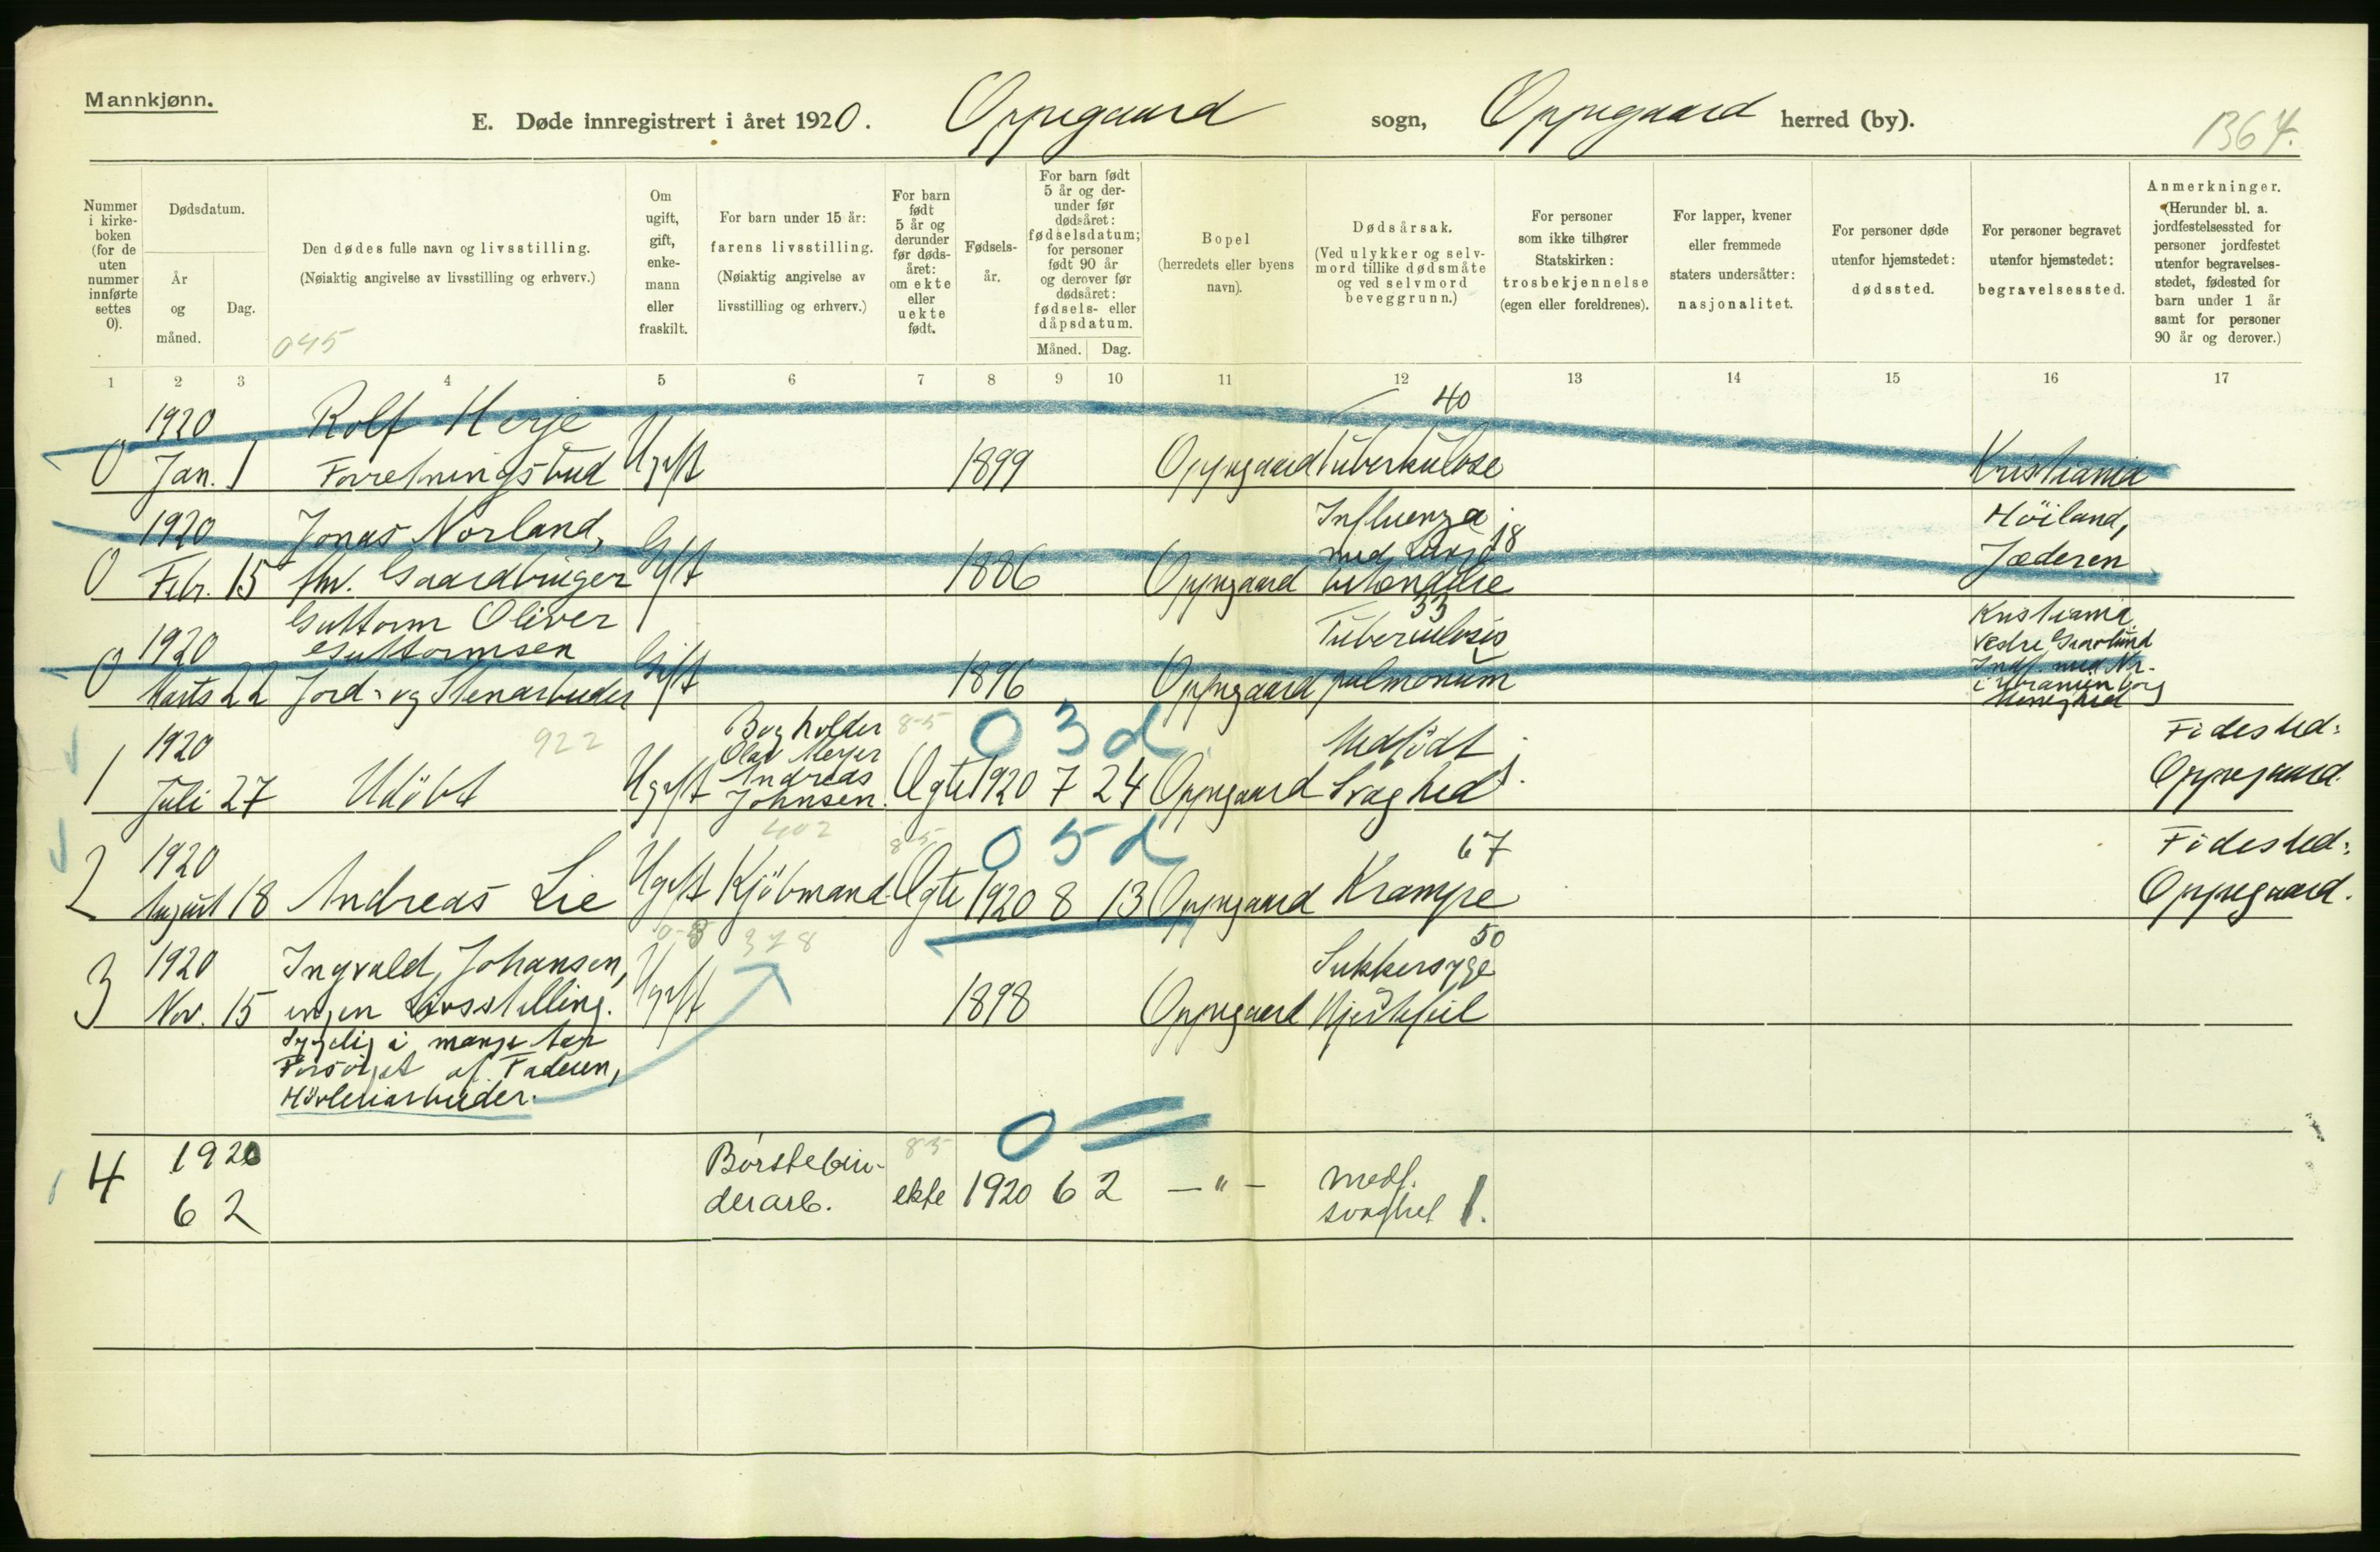 Mannkjønn.
E. Døde innregistrert i året 1920. Oppegaard sogn, Oppegaard herred (by).
1364.
Nummer i kirke-boken (for de uten nummer innførte settes 0).
Dødsdatum.
År og måned.
Dag.
Den dødes fulle navn og livsstilling.
(Nøiaktig angivelse av livsstilling og erhverv.)
045
Om ugift, gift, enke-mann eller fraskilt.
For barn under 15 år:
farens livsstilling.
(Nøiaktig angivelse av livsstilling og erhverv.)
For barn født 5 år og derunder før døds-året: om ekte eller uekte født.
Fødsels-år.
For barn født 5 år og der-under før dødsåret: fødselsdatum; for personer født 90 år og derover før dødsåret: fødsels- eller dåpsdatum.
Måned. Dag.
Bopel
(herredets eller byens navn).
Dødsårsak.
(Ved ulykker og selv-mord tillike dødsmåte og ved selvmord beveggrunn.)
For personer som ikke tilhører Statskirken: trosbekjennelse (egen eller foreldrenes).
For lapper, kvener eller fremmede staters undersåtter: nasjonalitet.
For personer døde utenfor hjemstedet: dødssted.
For personer begravet utenfor hjemstedet: begravelsessted.
Anmerkninger.
(Herunder bl. a. jordfestelsessted for personer jordfestet utenfor begravelses-stedet, fødested for barn under 1 år samt for personer 90 år og derover.)
1 2 3 4 5 6 7 8 9 10 11 12 13 14 15 16 17
1920 Rolf Herje 40
0 Jan. 1 Forretningsbud Ugift 1899 Oppegaard Tuberkulose Kristiania
1920 Jonas Norland, Influenza med 18 Höiland,
0 Febr. 15 fhv. Gaardbruger Gift 1886 Oppegaard Jæderen
Guttorm Oliver 33 Kristiania
1920 Guttormsen Tuberculosis Vestre
0 Marts 22 Jord- og Stenarbeider Gift 1896 Oppegaard pulmonum Indf. med Nr. i Uranienborg
922 Bogholder 8-5 0 3 d
1920 Olav Meyer Medfödt Födested:
1 Juli 27 Udöbt Ugift Andreas Johnsen. Ægte 1920 7 24 Oppegaard Svaghed 1. Oppegaard.
402 8-5 0 5 d
1920 67 Födested:
2 August 18 Andreas Lie Ugift Kjöbmand Ægte 1920 8 13 Oppegaard Krampe Oppegaard.
378 50
1920 Ingvald Johansen, Sukkersyge
3 Nov. 15 ingen Livsstilling. Ugift 1898 Oppegaard Hjertefeil
Sygelig i mange Aar
Forsörget af Faderen,
Hövleriarbeider.
0 =
4 1920 Børstebin- 8-5
6 2 derarb. ekte 1920 6 2 — " — medf. svaghet 1.